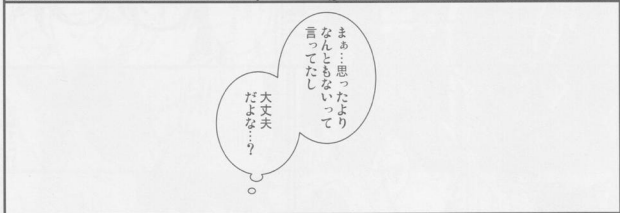 まぁ…思ったより
なんともないって
言ってたし
大丈夫
だよな…？